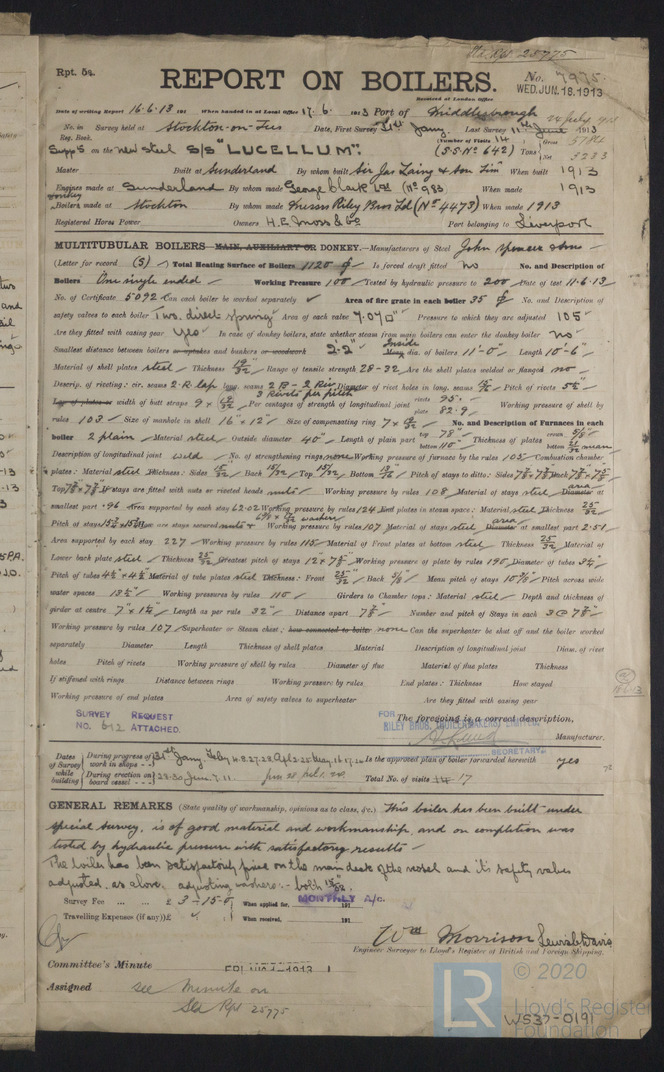 Rpt. 5d.
REPORT ON BOILERS.
No. 7975.
Received at London Office WED. JUN. 18. 1913
Date of writing Report 16.6.13 191 When handed in at Local Office 17.6. 1913 Port of Middlesbrough
No. in Survey held at Stockton-on-Tees Date, First Survey 31st Jany. Last Survey 1913
Reg. Book. (Number of Visits 14)
on the new steel S/S "LUCELLUM". (S.S. No 642) Tons Gross Net 3233
Master Built at Sunderland By whom built Sir Jas Laing & Son Lim When built 1913
Engines made at Sunderland By whom made George Clark Ltd (No 983 When made 1913
Boilers made at Stockton By whom made Messrs Riley Bros Ld (No 4473) When made 1913
Registered Horse Power Owners H.E. Moss & Co Port belonging to Liverpool
MULTITUBULAR BOILERS MAIN, AUXILIARY OR DONKEY.—Manufacturers of Steel John Spencer & Sons
(Letter for record (S) Total Heating Surface of Boilers 1120 Is forced draft fitted no No. and Description of
Boilers One single ended Working Pressure 100 Tested by hydraulic pressure to 200 Date of test 11.6.13
No. of Certificate 5092 Can each boiler be worked separately Area of fire grate in each boiler 35 No. and Description of
safety valves to each boiler Two, direct spring Area of each valve 7.07 Pressure to which they are adjusted 105
Are they fitted with easing gear Yes In case of donkey boilers, state whether steam from main boilers can enter the donkey boiler no
Smallest distance between boilers or uptakes and bunkers or woodwork 2'-2" Inside Mean dia. of boilers 11'-0" Length 10'-6"
Material of shell plates steel Thickness 19/32 Range of tensile strength 28-32 Are the shell plates welded or flanged no
Descrip. of riveting: cir. seams 2 R. lap long. seams Diameter of rivet holes in long. seams 15/16 Pitch of rivets
3 Rivets per pitch
Lap of plates or width of butt straps Per centages of strength of longitudinal joint rivets 95 plate 82.9 Working pressure of shell by
rules 103 Size of manhole in shell 16" x 12" Size of compensating ring No. and Description of Furnaces in each
boiler 2 plain Material steel Outside diameter 40" Length of plain part top 78" bottom Thickness of plates crown bottom
Description of longitudinal joint weld No. of strengthening rings none Working pressure of furnace by the rules 105 Combustion chamber
plates: Material steel Thickness: Sides 15/32 Back 15/32 Top 15/32 Bottom Pitch of stays to ditto: Sides Back
Top If stays are fitted with nuts or riveted heads nuts Working pressure by rules 108 Material of stays steel area Diameter at
smallest part .96 Area supported by each stay 62.02 Working pressure by rules 124 End plates in steam space: Material steel Thickness 25/32
Pitch of stays How are stays secured nuts & washers Working pressure by rules 107 Material of stays steel area Diameter at smallest part 2.51
Area supported by each stay 227 Working pressure by rules 115 Material of Front plates at bottom steel Thickness 25/32 Material of
Lower back plate steel Thickness 25/32 Greatest pitch of stays Working pressure of plate by rules 190 Diameter of tubes 3¼"
Pitch of tubes 4½ x 4½ Material of tube plates steel Thickness: Front 25/32 Back 5/8" Mean pitch of stays Pitch across wide
water spaces 13½" Working pressures by rules 110 Girders to Chamber tops: Material steel Depth and thickness of
girder at centre Length as per rule 32" Distance apart Number and pitch of Stays in each
Working pressure by rules 107 Superheater or Steam chest; how connected to boiler none Can the superheater be shut off and the boiler worked
separately Diameter Length Thickness of shell plates Material Description of longitudinal joint Diam. of rivet
holes Pitch of rivets Working pressure of shell by rules Diameter of flue Material of flue plates Thickness
If stiffened with rings Distance between rings Working pressure by rules End plates: Thickness How stayed
Working pressure of end plates Area of safety valves to superheater Are they fitted with easing gear
SURVEY REQUEST
NO. 612 ATTACHED.
The foregoing is a correct description,
FOR RILEY BROS. (BOILERMAKERS) LIMITED.
Manufacturer.
SECRETARY.
Dates of Survey while building
During progress of work in shops - - 31st Jany. Is the approved plan of boiler forwarded herewith yes
During erection on board vessel - - - Total No. of visits 17
GENERAL REMARKS (State quality of workmanship, opinions as to class, &c.) This boiler has been built under
special survey, is of good material and workmanship, and on completion was
tested by hydraulic pressure with satisfactory results
The boiler has been satisfactorily fixed on the main deck of the vessel and its safety valves
adjusted as above. adjusting washers:- both 15/32.
Survey Fee ... ... £ 3-15-0 When applied for, MONTHLY A/c. 191
Travelling Expenses (if any) £ When received, 191
Wm Morrison Lewis Davis
Engineer Surveyor to Lloyd's Register of British and Foreign Shipping.
Committee's Minute FRI. AUG. 1 - 1913
Assigned see Minute on
See Rpt 25775
LR
© 2020
Lloyd's Register
Foundation
W537-0191